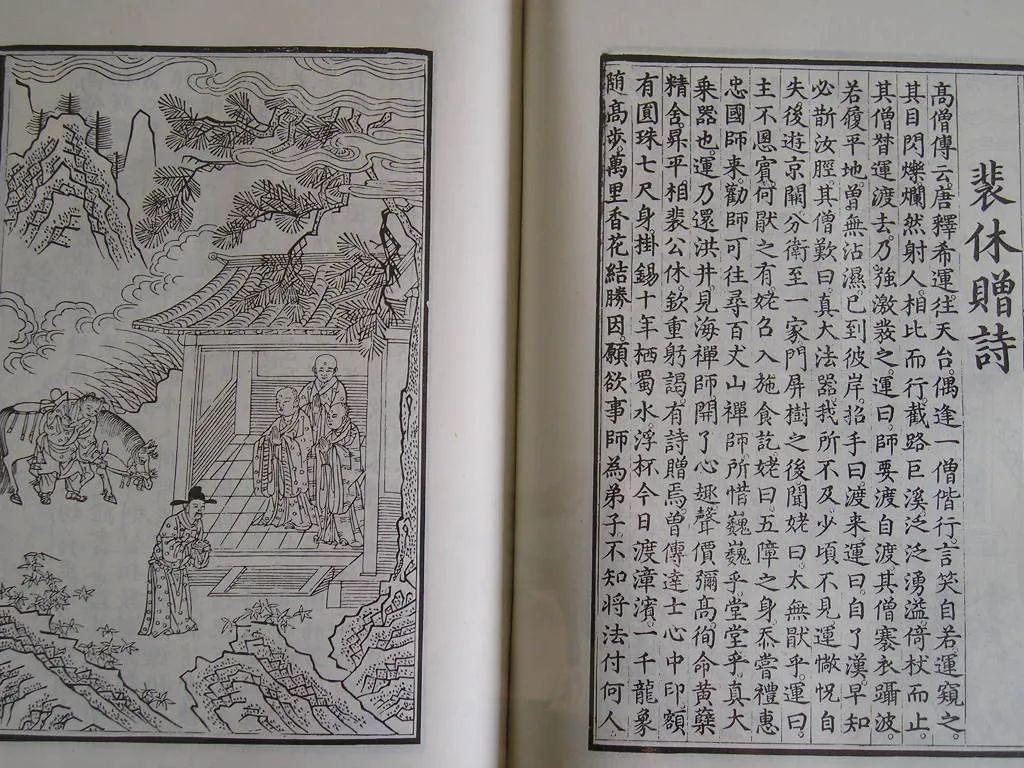 裴休贈詩
高僧傳云唐釋希運往天台偶逢一僧偕行言笑自若運窺之
其目閃爍爛然射人相比而行截路巨溪泛泛湧溢倚杖而止
其僧督運渡去乃強激發之運曰師要渡自渡其僧褰衣躡波
若履平地曾無沾濕已到彼岸招手曰渡來運曰自了漢早知
必斮汝脛其僧歎曰真大法器我所不及少頃不見運憮怳自
失後遊京闕分衛至一家門屏樹之後聞姥曰太無猒乎運曰
主不恩賓何猒之有姥召入施食訖姥曰五障之身忝嘗禮惠
忠國師来勸師可往尋百丈山禪師所惜巍巍乎堂堂乎真大
乗器也運乃還洪井見海禪師開了心趣聲價彌髙徇命黄蘗
精舍昇平相裴公休欽重躬謁有詩贈焉曾傳達士心中印額
有圓珠七尺身掛錫十年栖蜀水浮杯今日渡漳濱一千龍象
随高步萬里香花結勝因願欲事師為弟子不知将法付何人